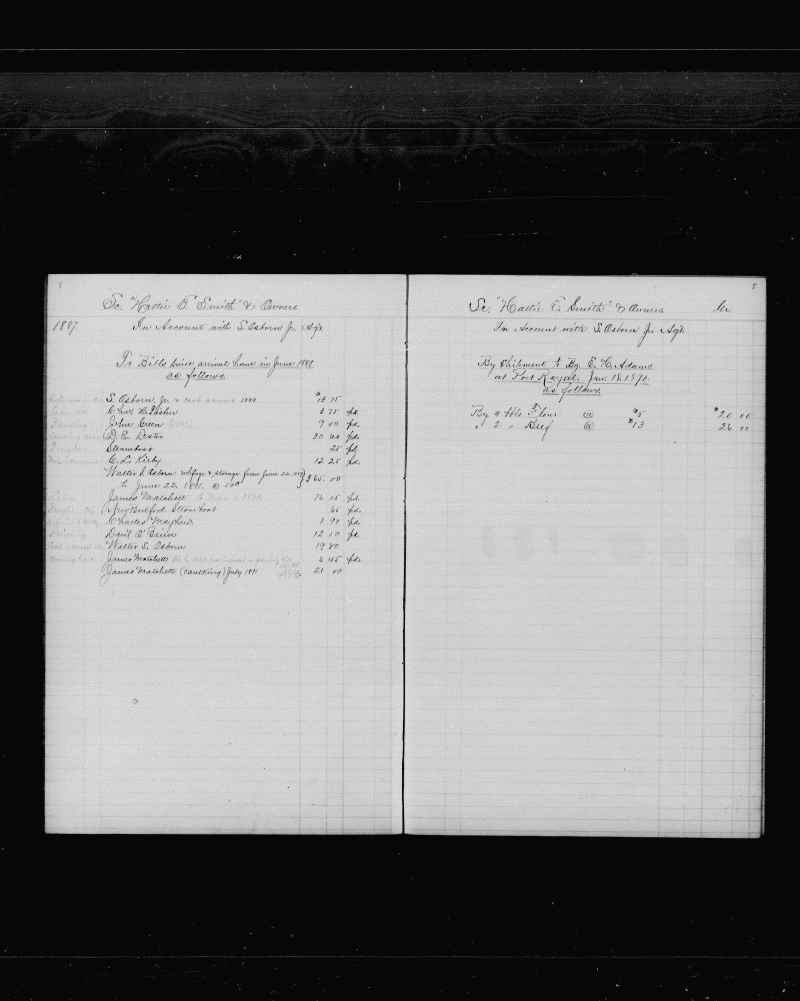 8
Sc. "Hattie E. Smith" & Owners
1889. In Account with S. Osborn Jr. Agt.
To Bills since arrival home in June 1889
as follows
S. Osborn, Jr. & cash advance 1889 $13 75
Chas. H. Fisher 3 75 pd.
John Green 9 00 pd.
D. E. Dexter 30 40 pd.
Steamboat 25 pd.
C. L. Kirby 12 25 pd.
Walter S. Osborn wharfage & storage from June 22, 1889
to June 22, 1891. @ 50¢ } 365.00
James Matchett 16 05 pd.
New Bedford Steamboat 65 pd.
Charles Mayhew 1 90 pd.
Daniel O'Brien 12 50 pd.
Walter S. Osborn 19 80
James Matchett 6 45 pd.
James Matchett (caulking) July 1891 21 00
8
Sc. "Hattie E. Smith" & Owners Cr.
In Account with S. Osborn Jr. Agt.
By Shipment to Bg. E. H. Adams
at Port Royal. Jan. 18. 1890.
as follows.
By 4 Bbls Flour @ $5 $20 00
" 2 " Beef @ $13 26 00